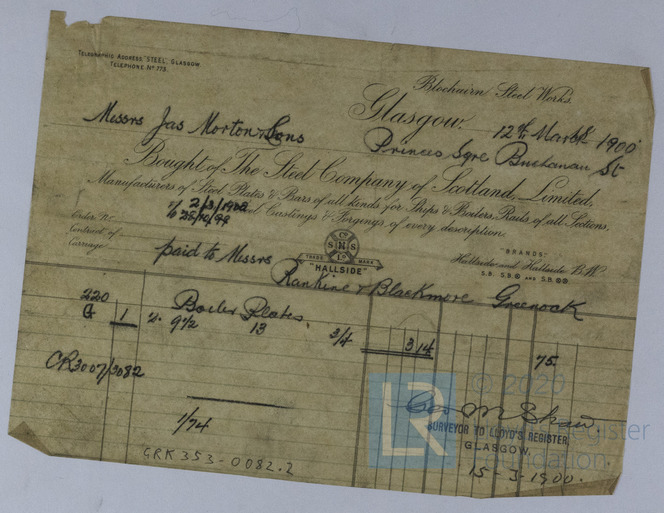 TELEGRAPHIC ADDRESS "STEEL," GLASGOW
TELEPHONE Nº 773
Blochairn Steel Works.
Glasgow, 12th March 1900
Messrs Jas Morton & Sons
Princes Sqre Buchanan St
Bought of The Steel Company of Scotland, Limited,
Manufacturers of Steel Plates & Bars of all kinds for Ships & Boilers, Rails of all Sections,
Castings & Forgings of every description.
Order Nº 2/3/1900
Contract of 25/10/99
Carriage paid to Messrs
Cº
S H S
Lº
TRADE MARK
"HALLSIDE"
"BRANDS"
Hallside and Hallside B.W.
S.B. S.B. AND S.B.
Rankine & Blackmore Greenock
220
G 1
Boiler Plates.
2. 9½ 13 3/4 314 75.
CR3007/3082
1/74
© 2020
Lloyd's Register
Foundation
LR
Geo. M Shaw.
SURVEYOR TO LLOYD'S REGISTER,
GLASGOW.
15-3-1900.
GRK353-0082.2